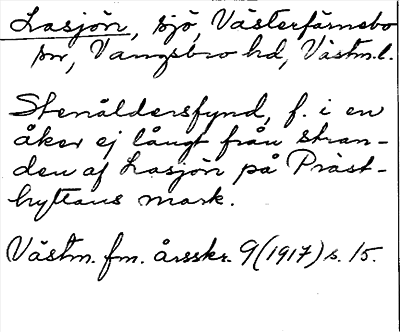 Lasjön, sjö, Västerfärnebo
sn, Vangsbro hd, Västm.l.
Stenåldersfynd, f. i en
åker ej långt från stran-
den af Lasjön på Präst-
hyttans mark.
Västm. fm. årsskr. 9 (1917) s. 15.